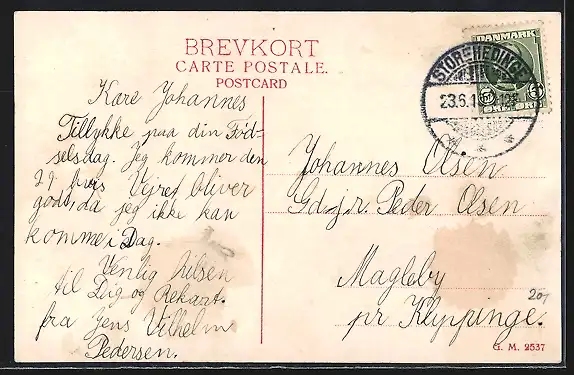 BREVKORT
CARTE POSTALE.
POSTCARD
DANMARK
STOREHEDINGE
23.6.1
Kære Johannes
Tillykke paa din Fød-
selsdag. Jeg kommer den
29, hvis Vejret bliver
godt, da jeg ikke kan
komme i Dag.
Venlig hilsen
til Dig og
fra Jens Vilhelm
Pedersen.
Johannes Olsen
Gdjr. Peder Olsen
Magleby
pr Klippinge.
20,-
G. M. 2537